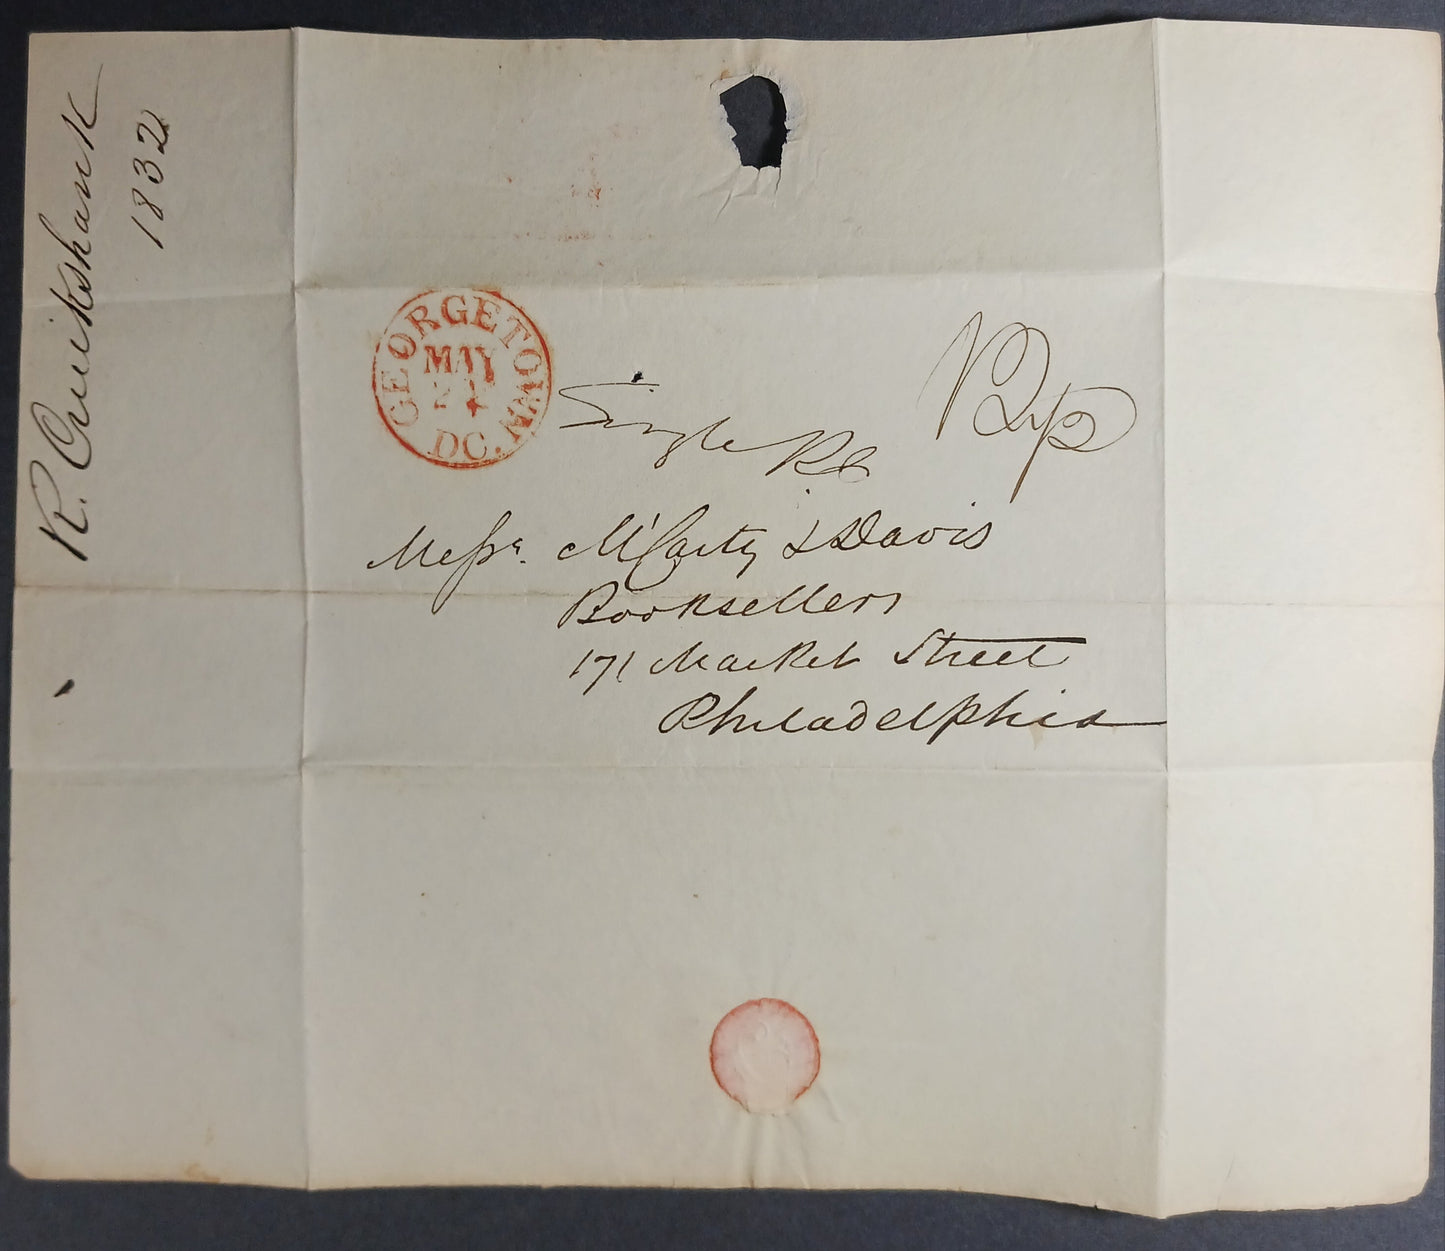 R. Cruikshank
1832
GEORGETOWN
MAY
21
DC.
Single RC
12½
Messrs. M'Carty & Davis
Booksellers
171 Market Street
Philadelphia